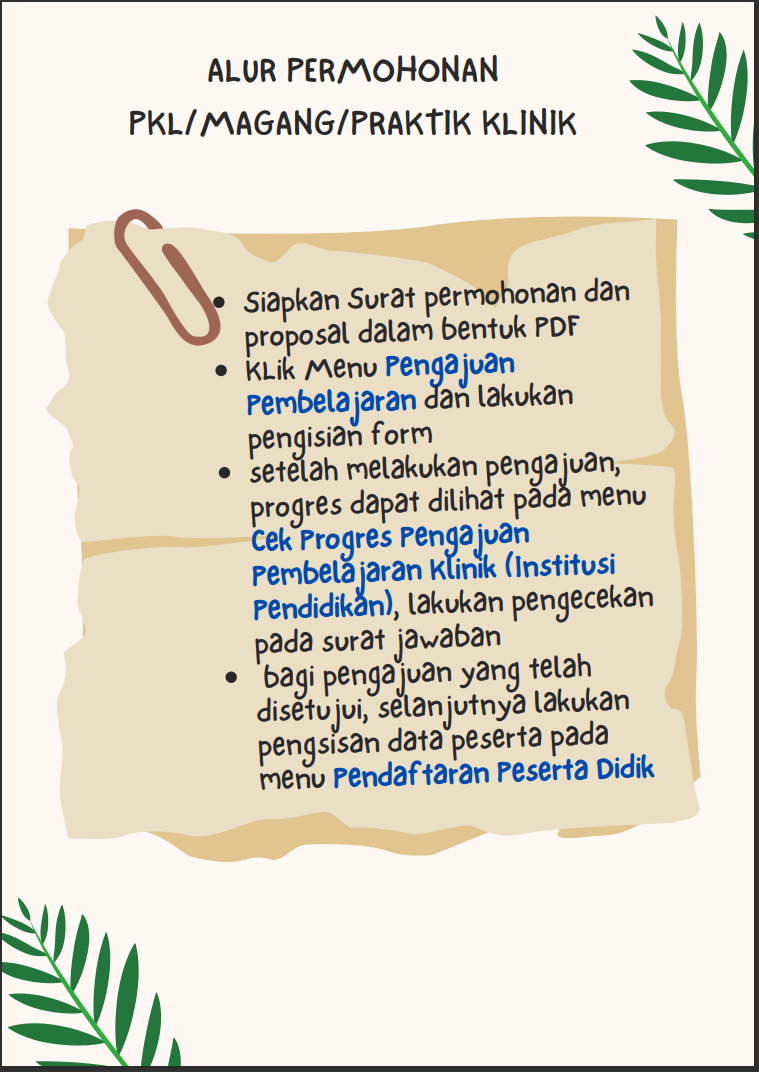 ALUR PERMOHONAN
PKL/MAGANG/PRAKTIK KLINIK
• Siapkan Surat permohonan dan
proposal dalam bentuk PDF
• KLik Menu Pengajuan
Pembelajaran dan lakukan
pengisian form
• setelah melakukan pengajuan,
progres dapat dilihat pada menu
Cek Progres Pengajuan
Pembelajaran Klinik (Institusi
Pendidikan), lakukan pengecekan
pada surat jawaban
• bagi pengajuan yang telah
disetujui, selanjutnya lakukan
pengsisan data peserta pada
menu Pendaftaran Peserta Didik